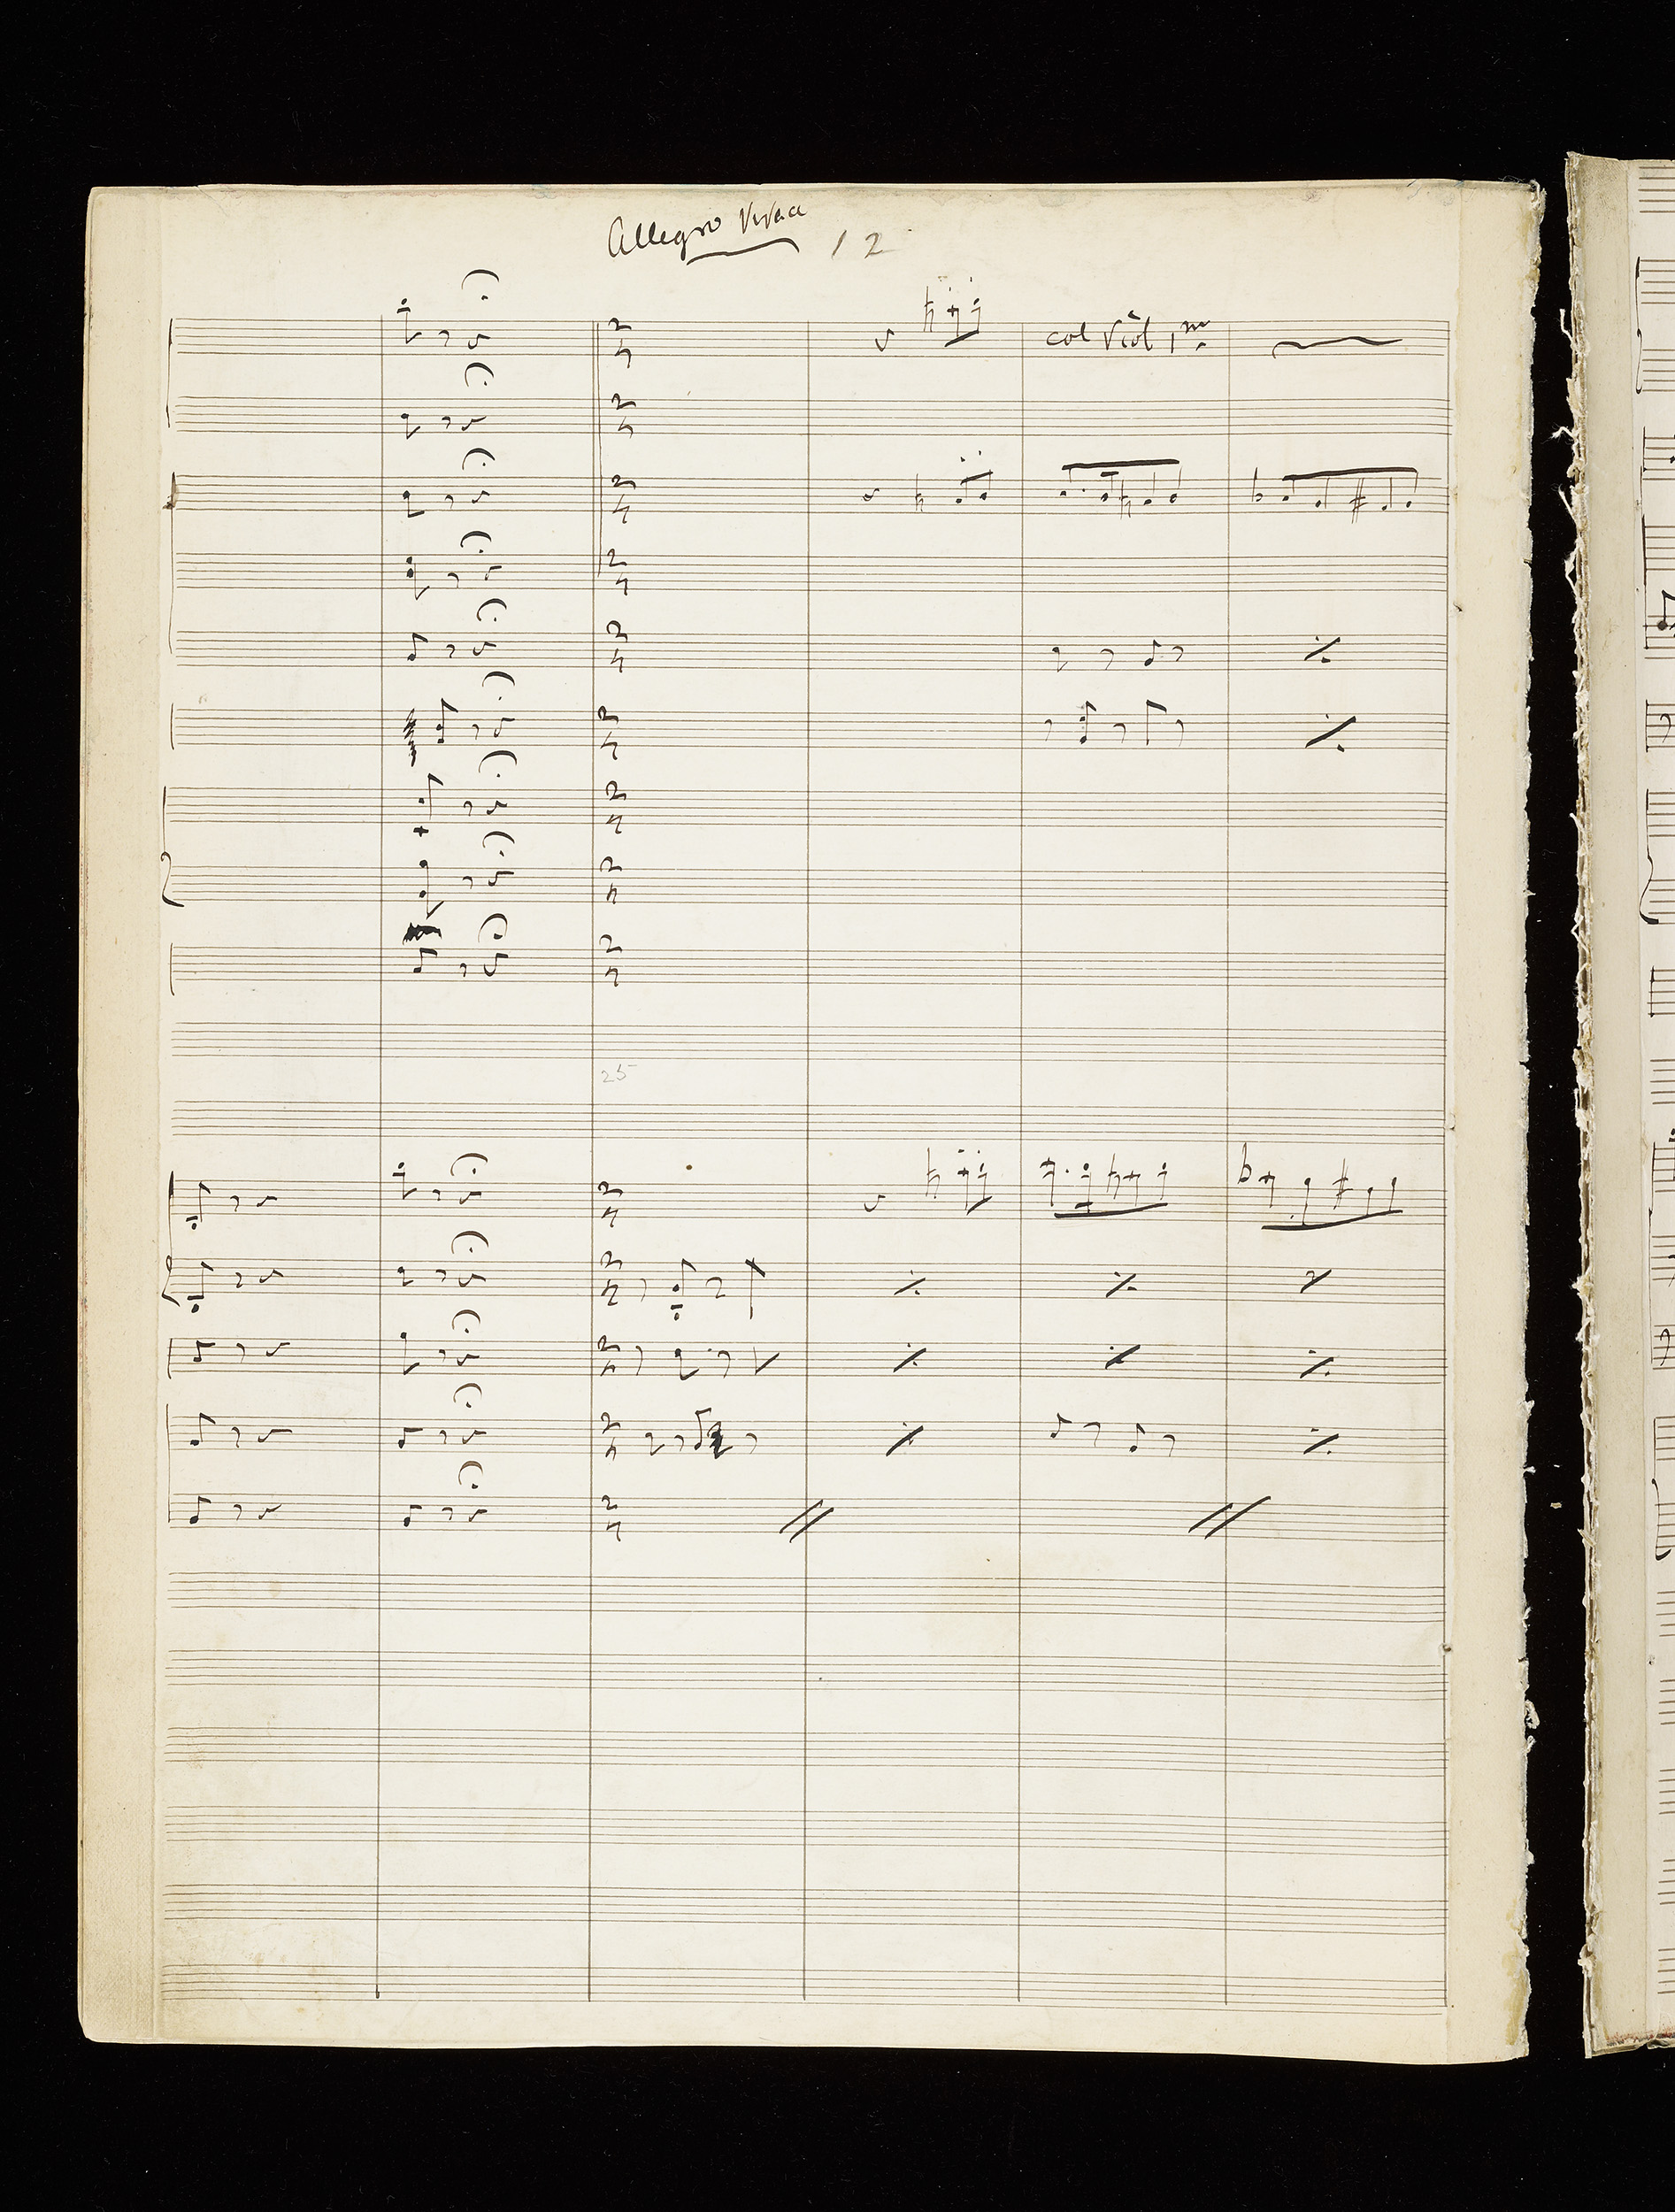 Allegro Vivace
12
col Viol 1mo
25